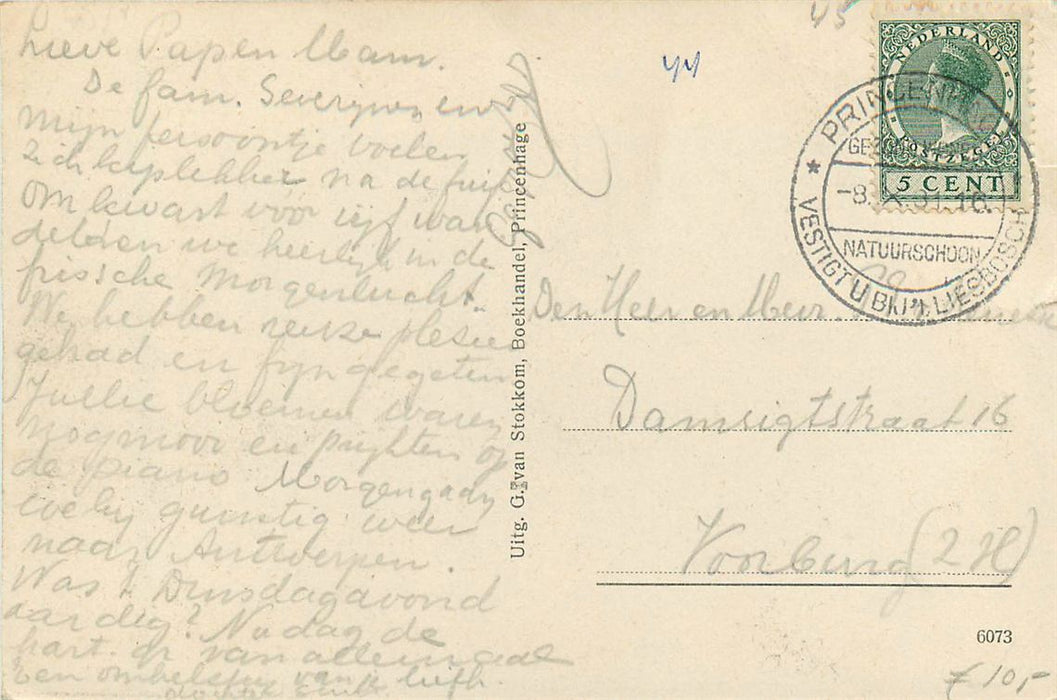 Lieve Pap en Mam.
De fam. Severijnen en
mijn persoontje voelen
zich kiplekker na de fuif
Om kwart voor vijf wan-
delden we heerlijk in de
frissche morgenlucht.
We hebben reuze plesier
gehad en fijn gegeten
Jullie bloemen waren
nog mooi en prijkten op
de piano Morgen gaan
we bij gunstig weer
naar Antwerpen.
Was 't Dinsdagavond
aardig? Nu dag de
hart. gr. van allemaal
Een omhelzing van je liefh.
dochter
Uitg. G. van Stokkom, Boekhandel, Princenhage
44
45
NEDERLAND
POSTZEGEL
5 CENT
PRINCENHAGE
NATUURSCHOON
VESTIGT U BIJ 'T LIESBOSCH
Den Heer en Mevr.
Damsigtstraat 16
Voorburg (Z H)
6073
f 10,-